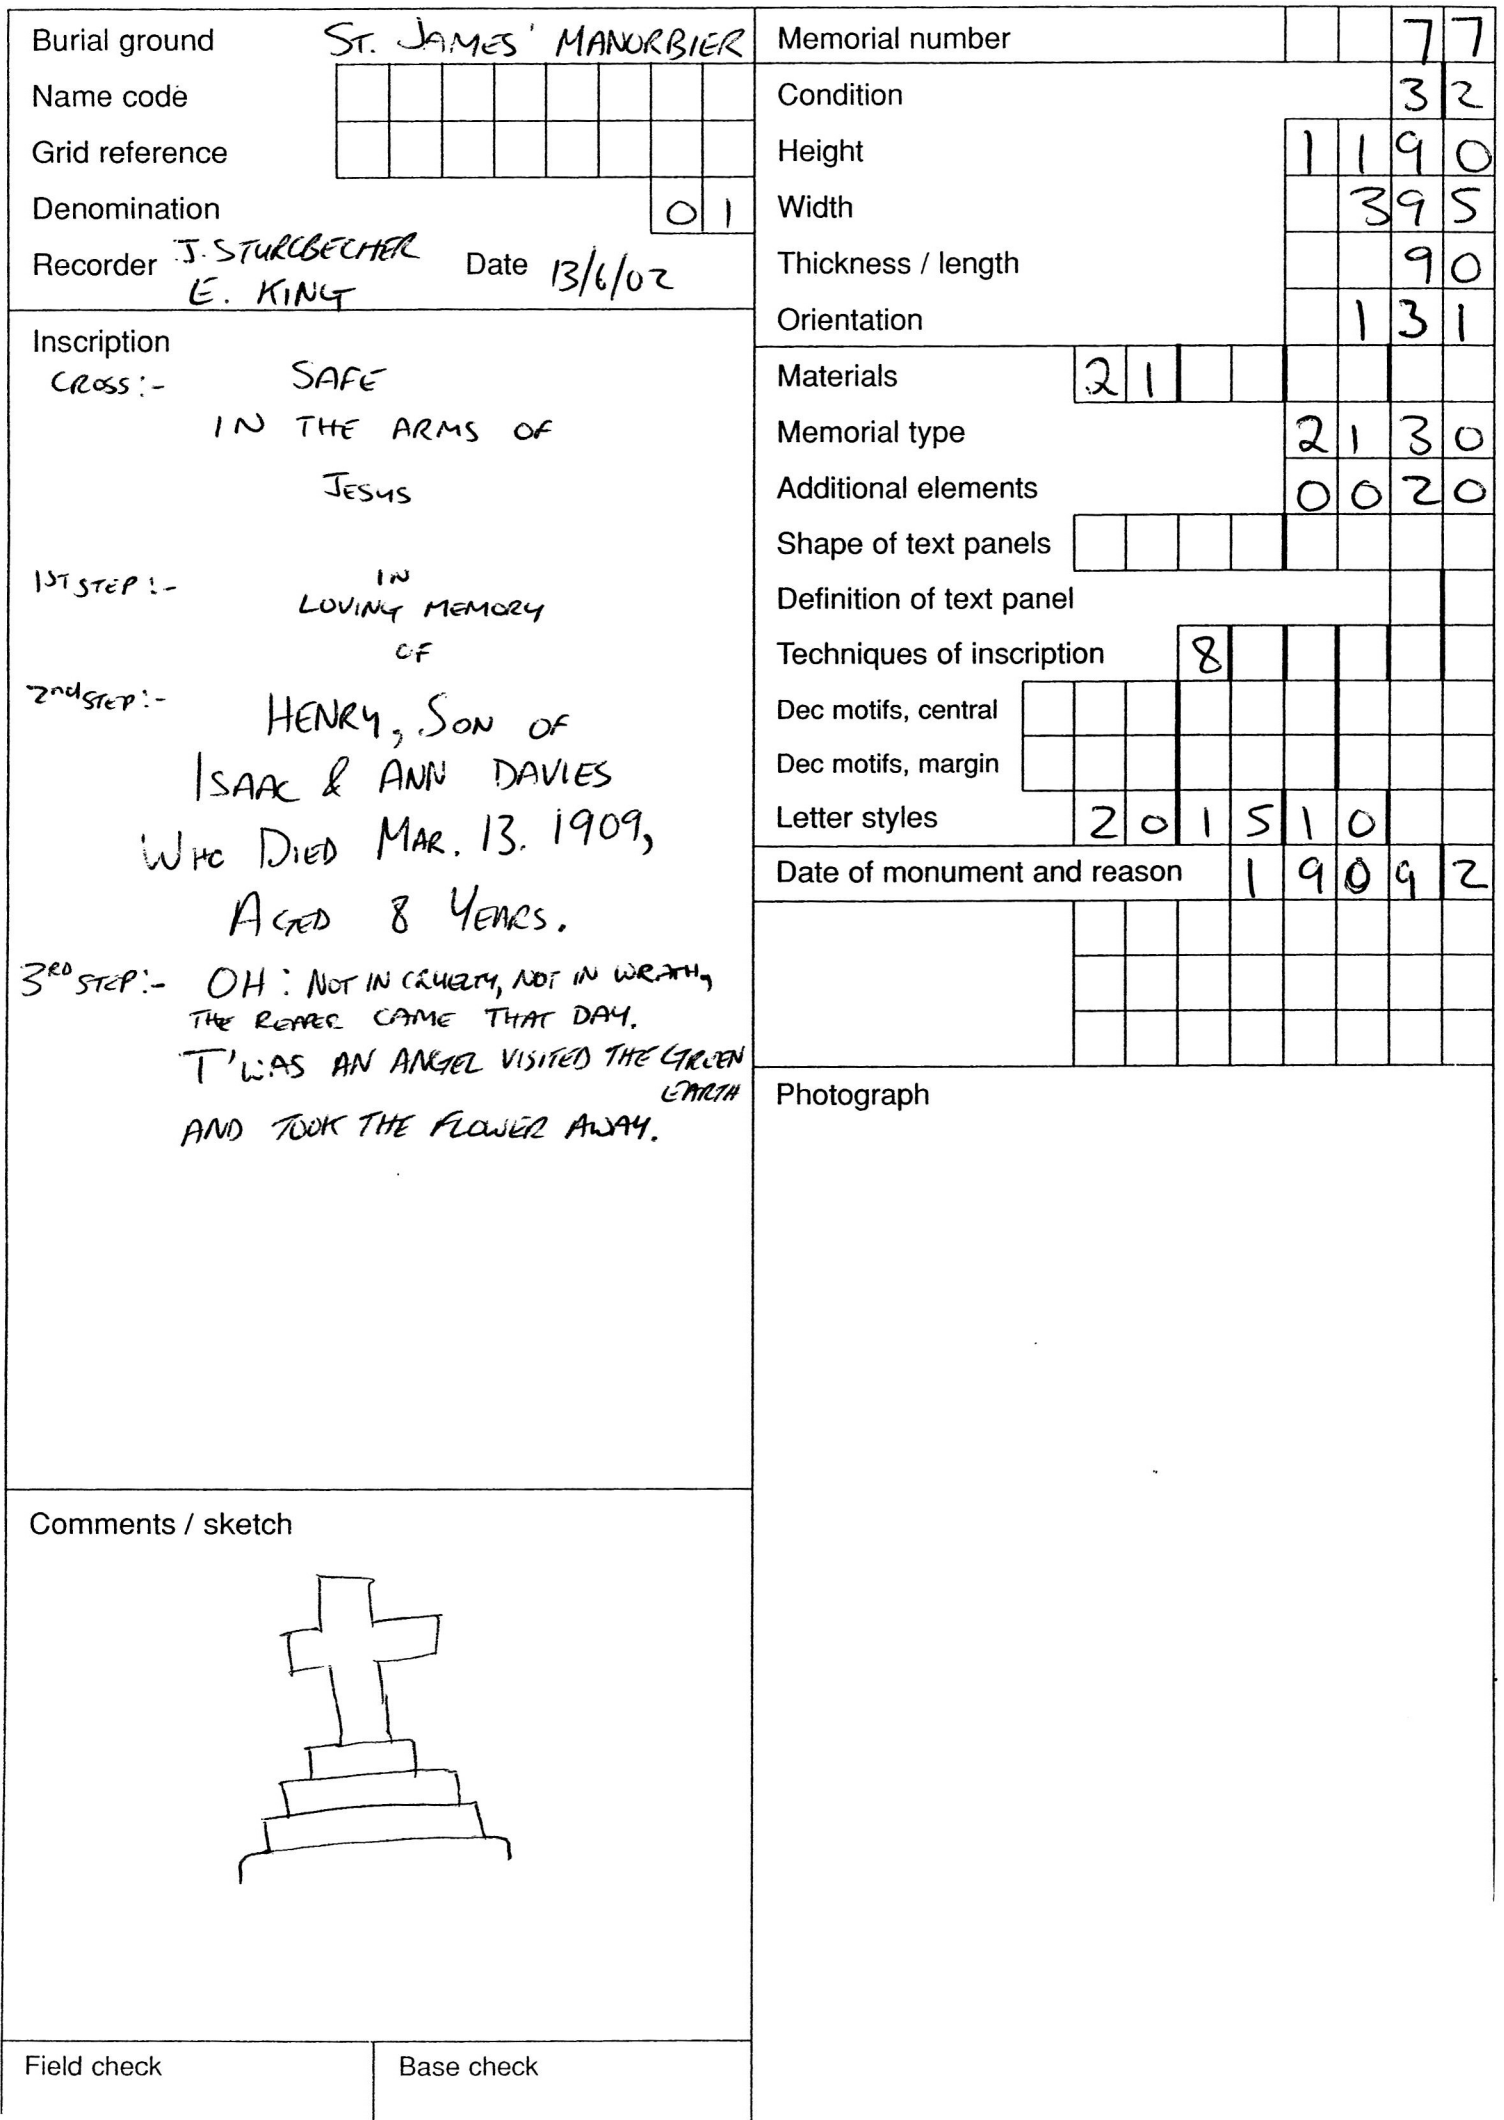 Burial ground ST. JAMES' MANORBIER
Name code
Grid reference
Denomination 0 1
Recorder J. STURCBECHER Date 13/6/02
E. KING
Inscription
CROSS:- SAFE
IN THE ARMS OF
JESUS
1ST STEP:- IN
LOVING MEMORY
OF
2nd STEP:- HENRY, SON OF
ISAAC & ANN DAVIES
WHO DIED MAR. 13. 1909,
AGED 8 YEARS.
3RD STEP:- OH: NOT IN CRUELTY, NOT IN WRATH,
THE REAPER CAME THAT DAY.
T'WAS AN ANGEL VISITED THE GREEN
EARTH
AND TOOK THE FLOWER AWAY.
Comments / sketch
Field check
Base check
Memorial number 7 7
Condition 3 2
Height 1 1 9 0
Width 3 9 5
Thickness / length 9 0
Orientation 1 3 1
Materials 2 1
Memorial type 2 1 3 0
Additional elements 0 0 2 0
Shape of text panels
Definition of text panel
Techniques of inscription 8
Dec motifs, central
Dec motifs, margin
Letter styles 2 0 1 5 1 0
Date of monument and reason 1 9 0 9 2
Photograph